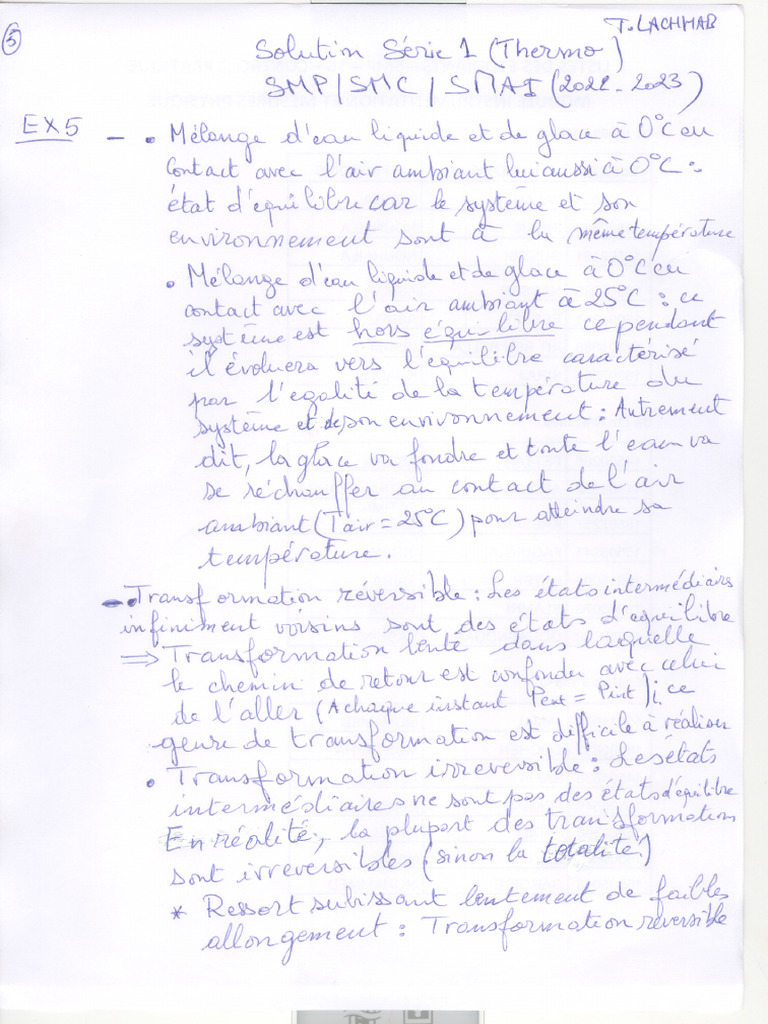 5
T. LACHHAB
Solution Série 1 (Thermo)
SMP/SMC/SMAI (2022-2023)
EX5 - • Mélange d'eau liquide et de glace à 0°C en
contact avec l'air ambiant lui aussi à 0°C :
état d'équilibre car le système et son
environnement sont à la même température
• Mélange d'eau liquide et de glace à 0°C en
contact avec l'air ambiant à 25°C : ce
système est hors équilibre cependant
il évoluera vers l'équilibre caractérisé
par l'egalité de la température du
système et de son environnement : Autrement
dit, la glace va fondre et toute l'eau va
se réchauffer au contact de l'air
ambiant (Tair = 25°C) pour atteindre sa
température.
- • Transformation réversible : Les états intermédiaires
infiniment voisins sont des états d'equilibre
⇒ Transformation lente dans laquelle
le chemin de retour est confondu avec celui
de l'aller (A chaque instant Pext = Pint) ; ce
genre de transformation est difficile à réaliser
• Transformation irreversible : Les états
intermédiaires ne sont pas des états d'équilibre
En réalité, la plupart des transformation
sont irreversibles (sinon la totalité)
* Ressort subissant lentement de faibles
allongement : Transformation réversible